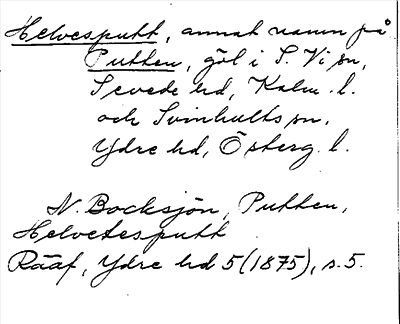 Helvesputt, annat namn på
Putten, göl i S. Vi sn,
Sevede hd, Kalm. l.
och Svinhults sn,
Ydre hd, Österg. l.
N. Bocksjön, Putten,
Helvetesputt
Rääf, Ydre hd 5 (1875), s. 5.